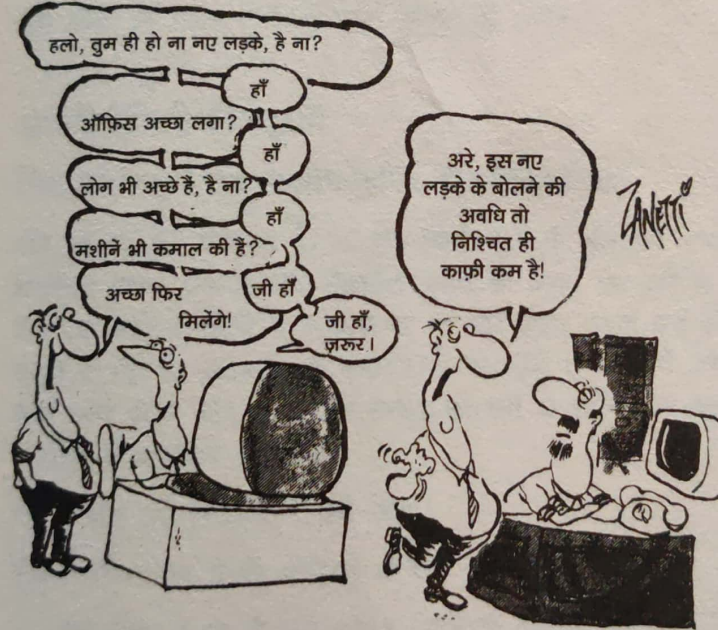 हलो, तुम ही हो ना नए लड़के, है ना?
हाँ
ऑफ़िस अच्छा लगा?
हाँ
लोग भी अच्छे हैं, है ना?
हाँ
मशीनें भी कमाल की हैं?
जी हाँ
अच्छा फिर
मिलेंगे!
जी हाँ,
ज़रूर।
अरे, इस नए
लड़के के बोलने की
अवधि तो
निश्चित ही
काफ़ी कम है!
ZANETTI